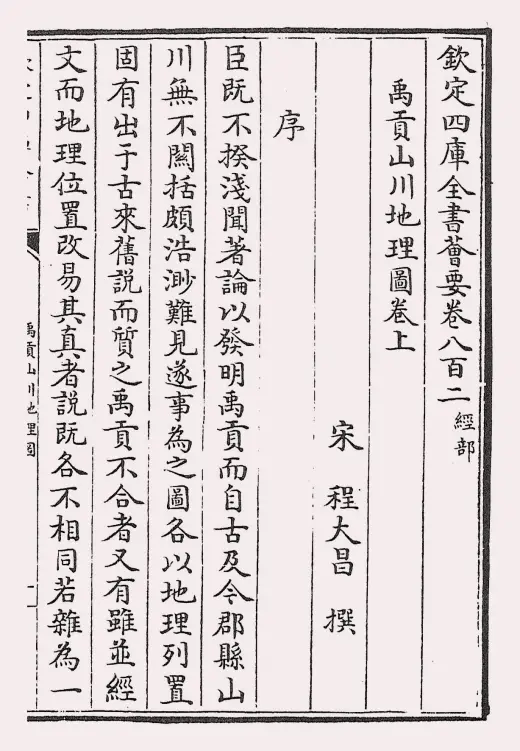 欽定四庫全書薈要卷八百二 經部
禹貢山川地理圖卷上
宋 程大昌 撰
序
臣既不揆淺聞著論以發明禹貢而自古及今郡縣山
川無不闗括頗浩渺難見遂事為之圖各以地理列置
固有出于古來舊説而質之禹貢不合者又有雖並經
文而地理位置改易其真者説既各不相同若雜為一
禹貢山川地理圖